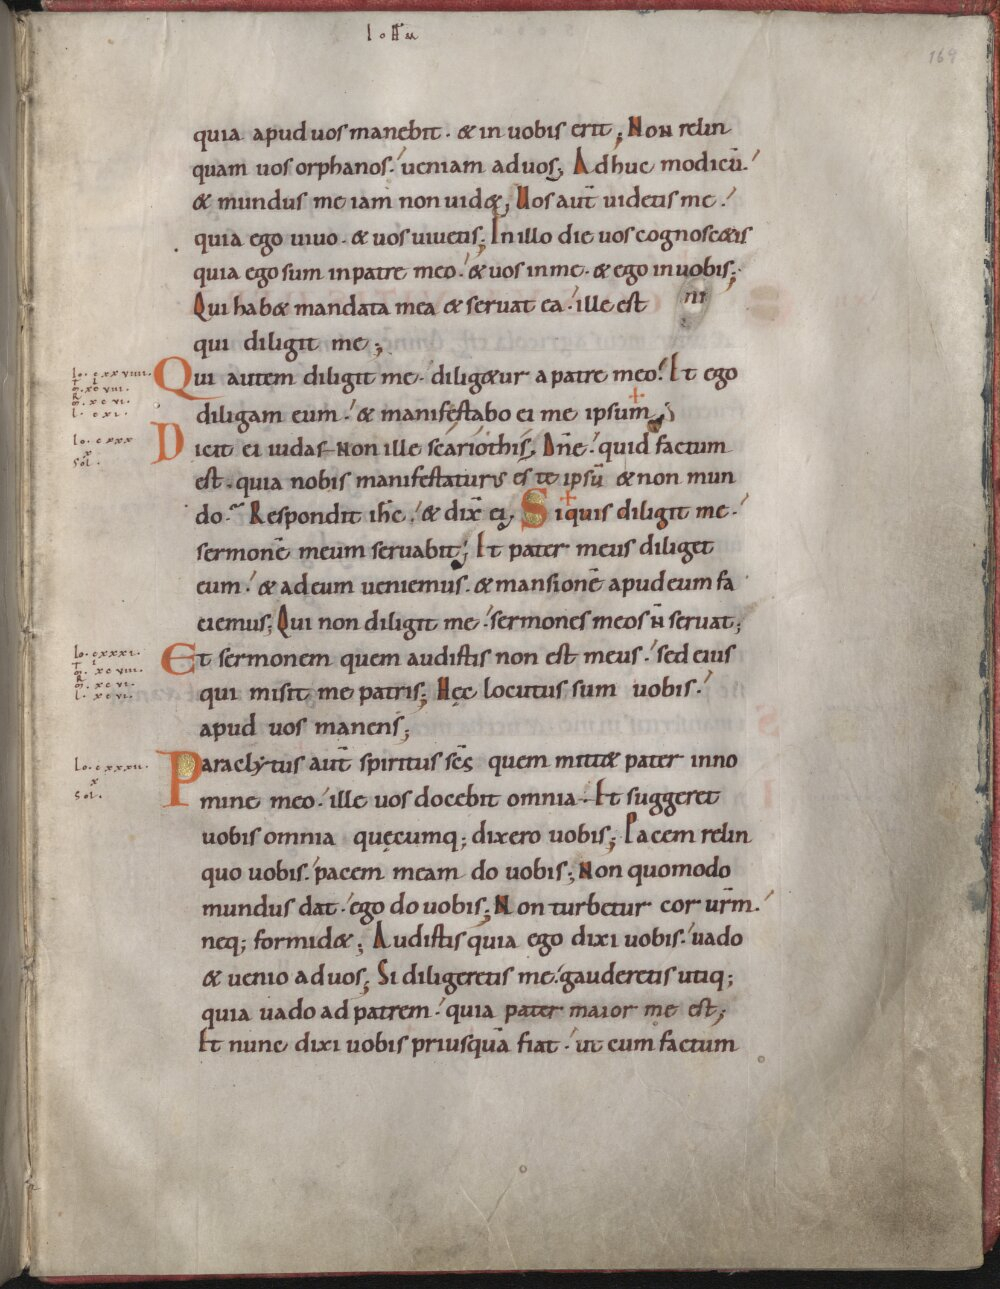 169
quia apud uos manebit. & in uobis erit; Non relin
quam uos orphanos. ueniam ad uos; Adhuc modicū.
& mundus me iam non uid&; Uos aut̄ uidetis me.
quia ego uiuo. & uos uiuetis; In illo die uos cognosc&is
quia ego sum in patre meo. & uos in me. & ego in uobis;
Qui hab& mandata mea & seruat ea. ille est
qui diligit me;
Qui autem diligit me. dilig&ur a patre meo. Et ego
diligam eum. & manifestabo ei me ipsum;
Dicit ei iudas non ille scariothis; Dn̄e. quid factum
est. quia nobis manifestaturus es te ipsū & non mun
do. Respondit ihc. & dix̄ ei. Siquis diligit me.
sermonē meum seruabit; Et pater meus diliget
eum. & ad eum ueniemus. & mansionē apud eum fa
ciemus; Qui non diligit me. sermones meos n̄ seruat;
Et sermonem quem audistis non est meus. sed eius
qui misit me patris; Hęc locutus sum uobis.
apud uos manens;
Paraclytus aut̄ spiritus sc̄s quem mitt& pater in no
mine meo. ille uos docebit omnia. Et suggeret
uobis omnia quęcumq; dixero uobis; Pacem relin
quo uobis. pacem meam do uobis; Non quomodo
mundus dat. ego do uobis; Non turbetur cor ur̄m.
neq; formid&; Audistis quia ego dixi uobis. uado
& uenio ad uos; Si diligeretis me. gauderetis utiq;
quia uado ad patrem. quia pater maior me est;
Et nunc dixi uobis priusquā fiat. ut cum factum